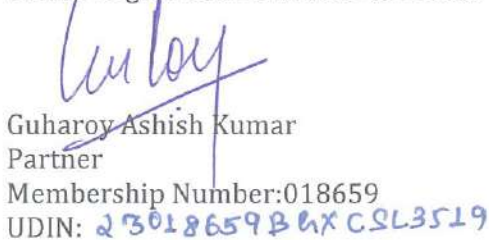 Guharoy Ashish Kumar
Partner
Membership Number:018659
UDIN: 23018659BGXCSL3519